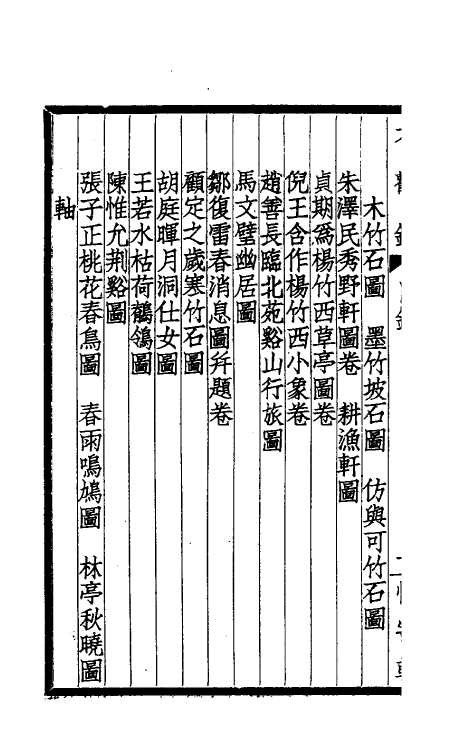 木竹石圖　墨竹坡石圖　仿與可竹石圖
朱澤民秀野軒圖卷　耕漁軒圖
貞期爲楊竹西草亭圖卷
倪王合作楊竹西小象卷
趙善長臨北苑谿山行旅圖
馬文璧幽居圖
鄒復雷春消息圖并題卷
顧定之歲寒竹石圖
胡庭暉月洞仕女圖
王若水枯荷鶺鴒圖
陳惟允荆谿圖
張子正桃花春鳥圖　春雨鳴鳩圖　林亭秋曉圖
軸